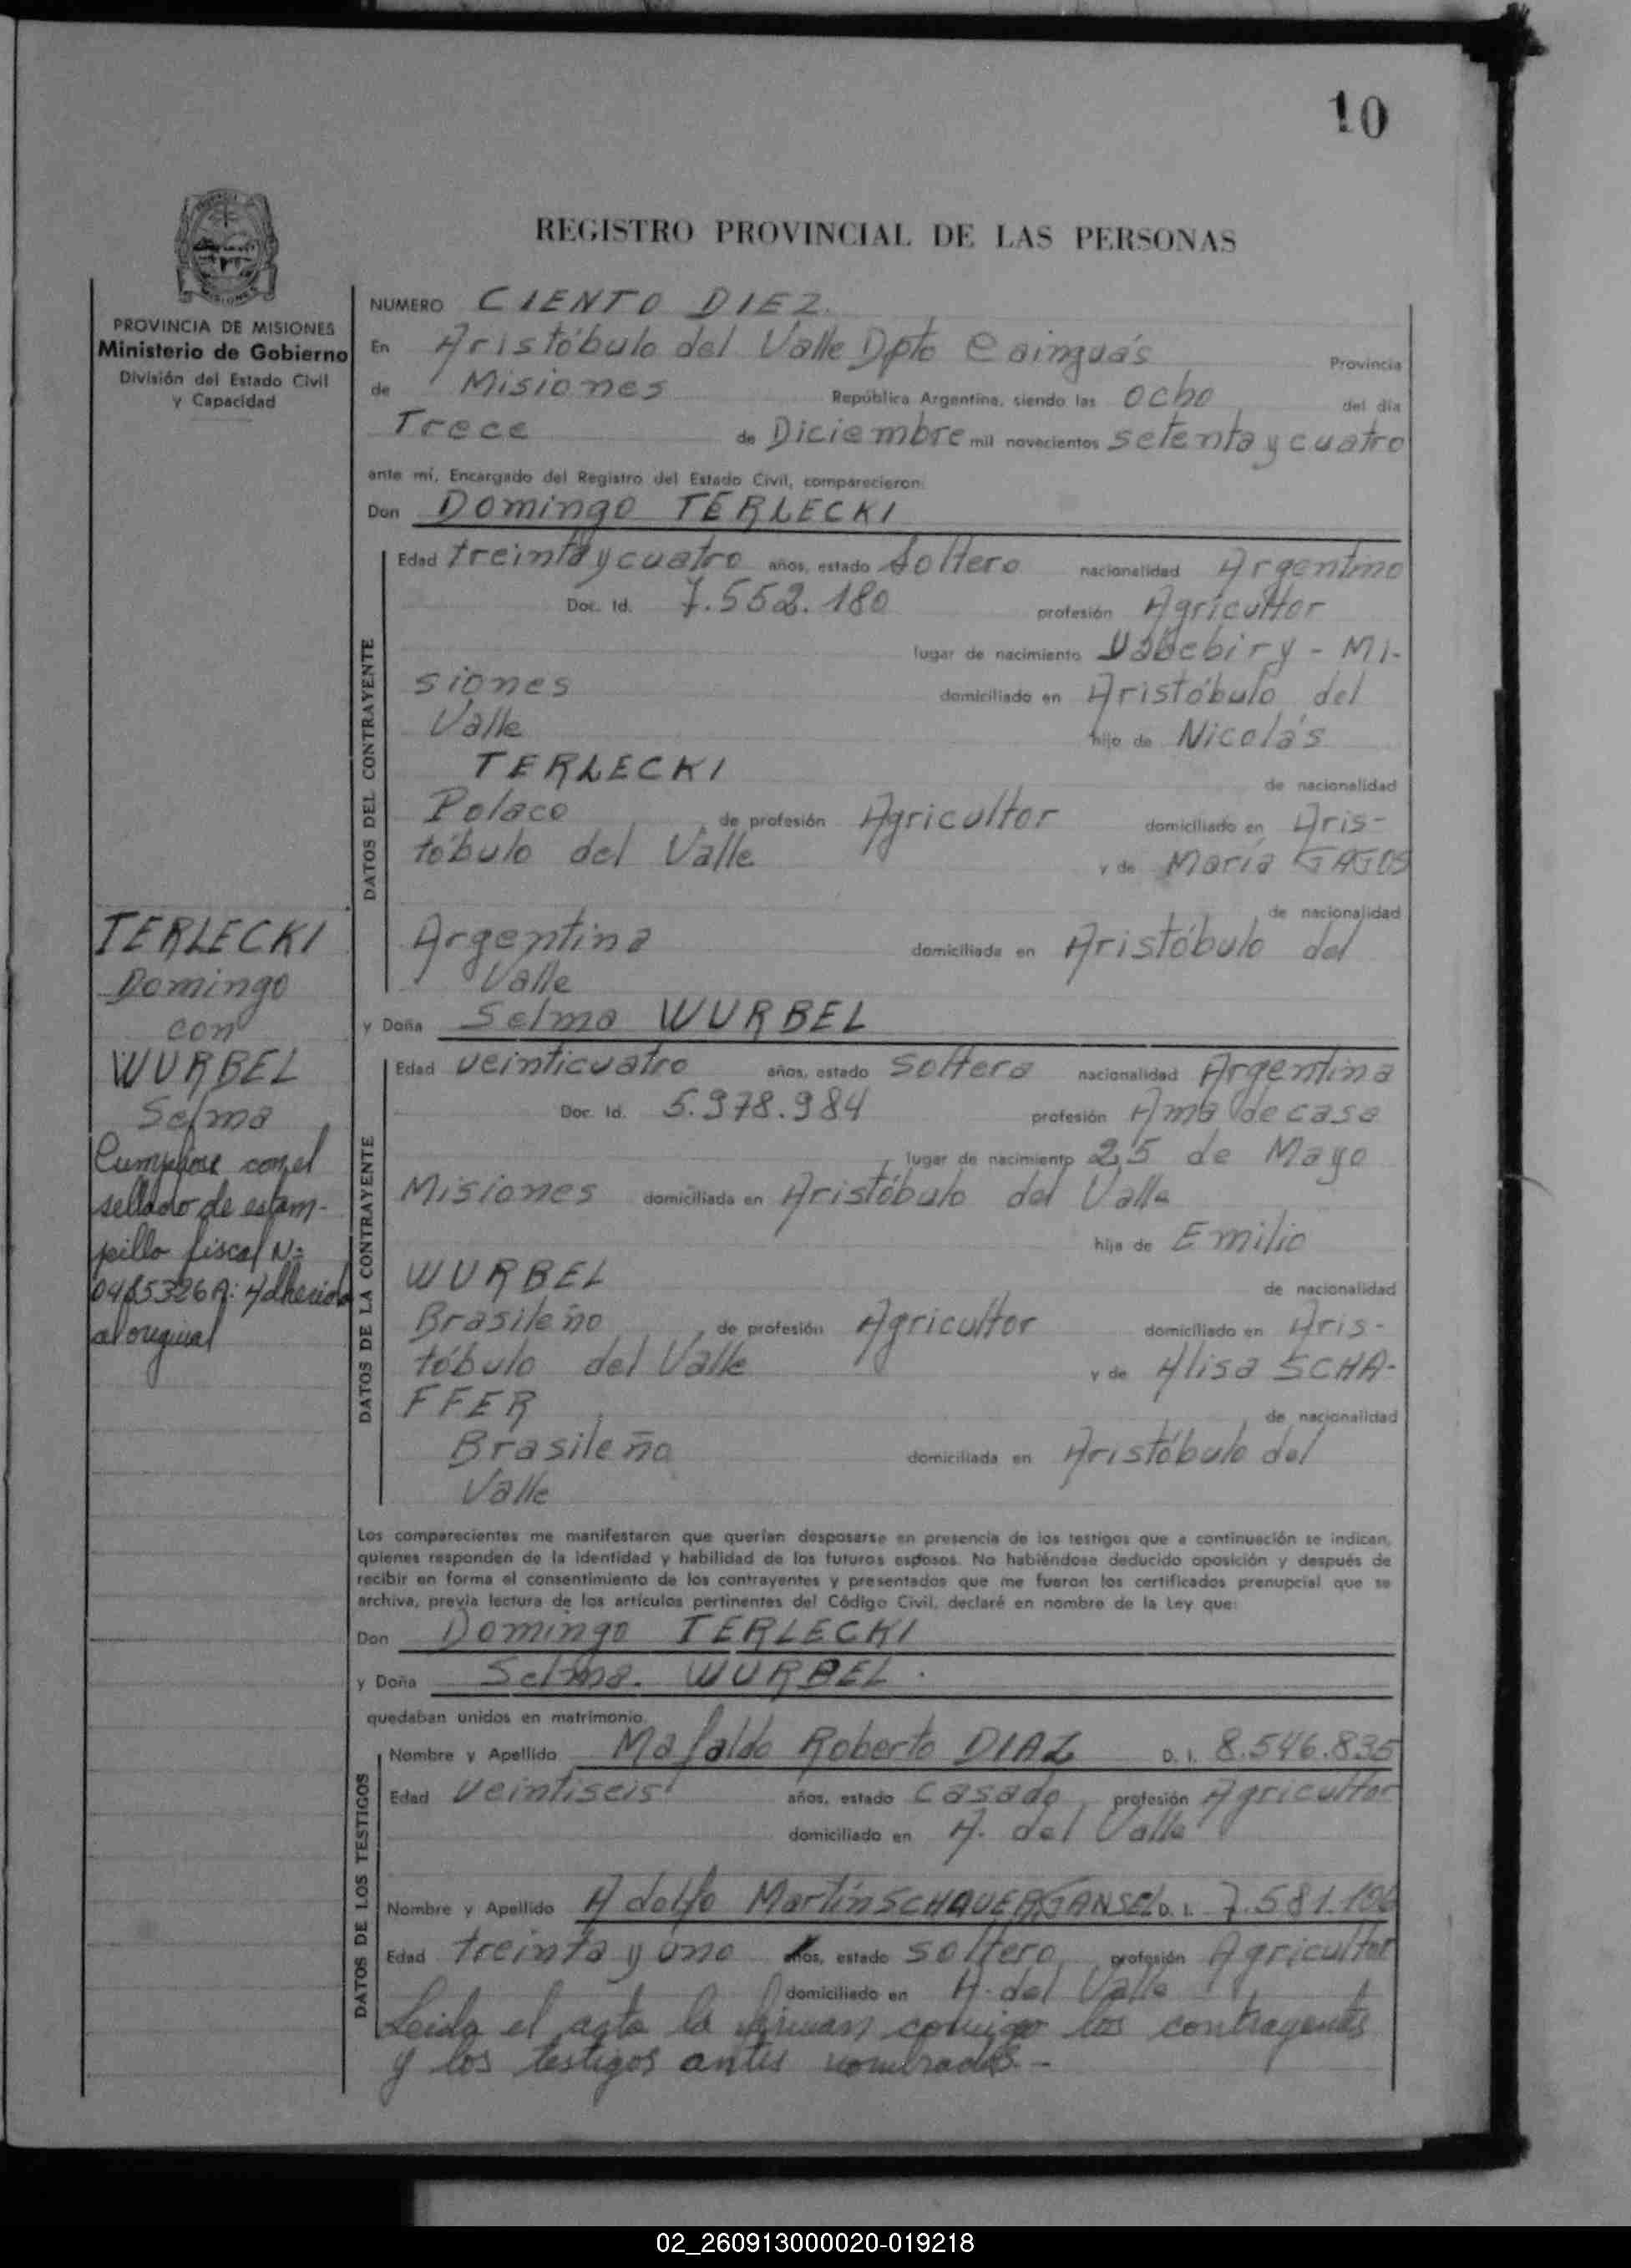 10
REGISTRO PROVINCIAL DE LAS PERSONAS
PROVINCIA DE MISIONES
Ministerio de Gobierno
División del Estado Civil
y Capacidad
NUMERO CIENTO DIEZ.
En Aristóbulo del Valle Dpto Cainguás Provincia
de Misiones República Argentina, siendo las ocho del día
Trece de Diciembre mil novecientos setenta y cuatro
ante mí, Encargado del Registro del Estado Civil, comparecieron:
Don Domingo TERLECKI
DATOS DEL CONTRAYENTE
Edad treinta y cuatro años, estado Soltero nacionalidad Argentino
Doc. Id. 7.552.180 profesión Agricultor
lugar de nacimiento Yabebiry - Mi-
siones domiciliado en Aristóbulo del
Valle hijo de Nicolás
TERLECKI de nacionalidad
Polaco de profesión Agricultor domiciliado en Aris-
tóbulo del Valle y de María GAGOS
de nacionalidad
Argentina domiciliada en Aristóbulo del
Valle
y Doña Selma WURBEL
DATOS DE LA CONTRAYENTE
Edad veinticuatro años, estado Soltera nacionalidad Argentina
Doc. Id. 5.978.984 profesión Ama de casa
lugar de nacimiento 25 de Mayo
Misiones domiciliada en Aristóbulo del Valle
hija de Emilio
WURBEL de nacionalidad
Brasileño de profesión Agricultor domiciliado en Aris-
tóbulo del Valle y de Alisa SCHA-
FFER de nacionalidad
Brasileña domiciliada en Aristóbulo del
Valle
TERLECKI
Domingo
con
WURBEL
Selma
Cumplose con el
sellado de estam-
pilla fiscal Nº
Adherida
al original
Los comparecientes me manifestaron que querían desposarse en presencia de los testigos que a continuación se indican,
quienes responden de la identidad y habilidad de los futuros esposos. No habiéndose deducido oposición y después de
recibir en forma el consentimiento de los contrayentes y presentados que me fueron los certificados prenupcial que se
archiva, previa lectura de los artículos pertinentes del Código Civil, declaré en nombre de la Ley que:
Don Domingo TERLECKI
y Doña Selma. WURBEL.
quedaban unidos en matrimonio.
DATOS DE LOS TESTIGOS
Nombre y Apellido Mafaldo Roberto DIAZ D. I. 8.546.835
Edad veintiseis años, estado casado profesión Agricultor
domiciliado en A. del Valle
Nombre y Apellido Adolfo Martín SCHAUERGANSEL D. I. 7.581.106
Edad treinta y uno años, estado soltero profesión Agricultor
domiciliado en A. del Valle
Leida el acta la firman conmigo los contrayentes
y los testigos antes nombrados.-
02_260913000020-019218